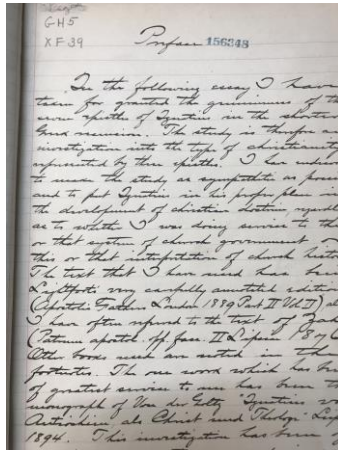 GH5
XF39
Preface 156348
In the following essay I have
taken for granted the genuineness of the
seven epistles of Ignatius in the shorter
Greek recension. The study is therefore an
investigation into the type of christianity
represented by these epistles. I have
to make the study as sympathetic as
and to put Ignatius in his proper place in
the development of christian doctrine,
as to whether I was doing service to this
or that system of church government
this or that interpretation of church
The text that I have used has been
Lightfoot's very carefully annotated edition
(Apostolic Fathers London 1889 Part II Vol II)
I have often referred to the text of
(Patrum apostol. opp. fasc. II Lipsiae 187
Other books used are noted in the
footnotes. The one work which has
of greatest service to me has been the
monograph of Von der Goltz "Ignatius von
Antiochien als Christ und Theologe"
1894. This investigation has been